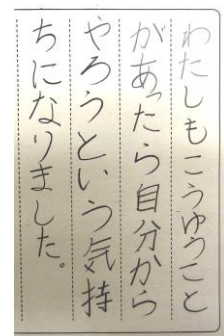 わたしもこうゆうこと
があったら自分から
やろうという気持
ちになりました。